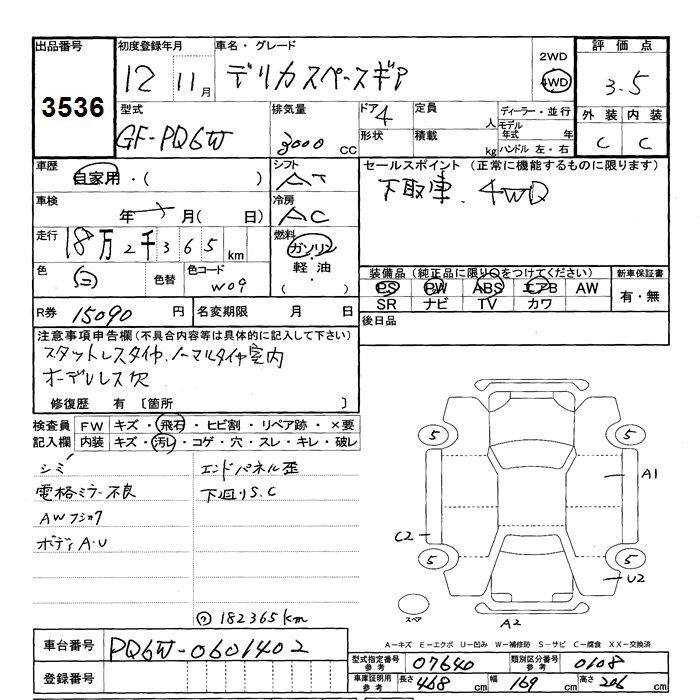 出品番号 初度登録年月 車名・グレード 2WD 評価点
3536 12 11月 デリカスペースギア 4WD 3.5
型式 排気量 ドア 4 定員 人 ディーラー・並行 外装 内装
GF-PQ6W 3000 CC 形状 積載 kg モデル年式 年 C C
ハンドル 左・右
車歴 自家用・( ) シフト AT セールスポイント(正常に機能するものに限ります)
車検 年 月( 日) 冷房 AC 下取車. 4WD
走行 18万2千365km 燃料 ガソリン・軽油・( )
色 白 色替 色コード W09 装備品(純正品に限り○をつけてください) 新車保証書
PS PW ABS エアB AW 有・無
SR ナビ TV カワ
R券 15090 円 名変期限 月 日 後日品
注意事項申告欄(不具合内容等は具体的に記入して下さい)
スタットレスタイヤ、ノーマルタイヤ室内
オーデルレス欠
修復歴 有〔箇所 〕
検査員 FW キズ・飛石・ヒビ割・リペア跡・×要
記入欄 内装 キズ・汚レ・コゲ・穴・スレ・キレ・破レ
シミ エンドパネル歪
電格ミラー不良 下廻りS.C
AWフショク
ボディA・U
182365km
5 5
A1
C2
5 5
U2
スペア A2
A-キズ E-エクボ U-凹み W-補修跡 S-サビ C-腐食 XX-交換済
車台番号 PQ6W-0601402
型式指定番号 参考 07640 類別区分番号 参考 0108
登録番号
車庫証明用 参考 長さ 468 cm 幅 169 cm 高さ 206 cm